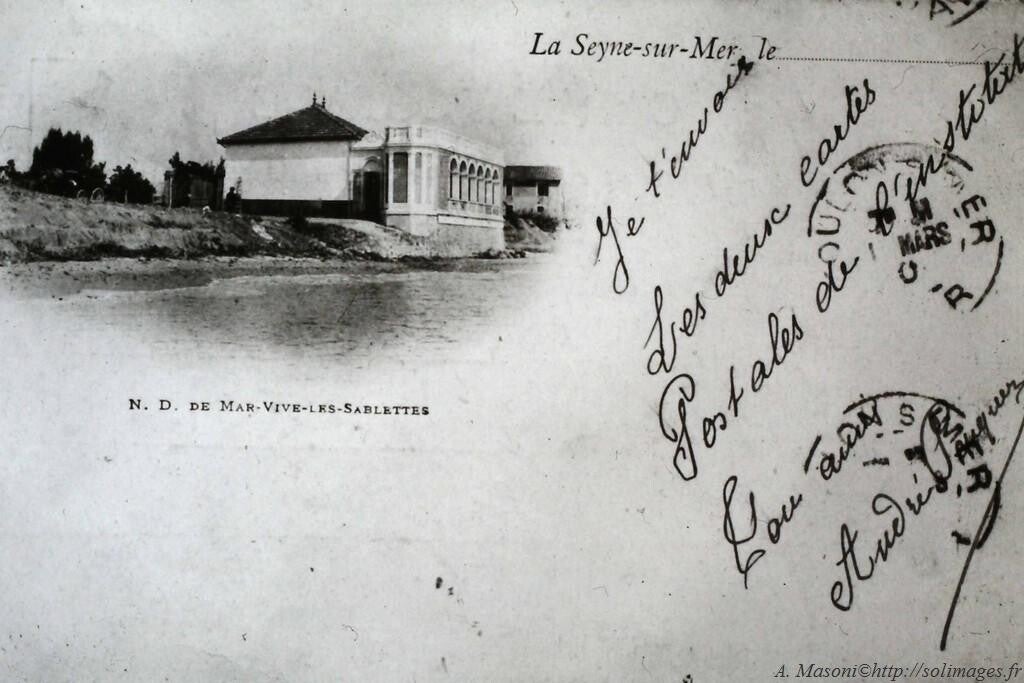 La Seyne-sur-Mer, le
Je t'envois
Les deux cartes
Postales de l'institut
Ton ami
André
N. D. DE MAR-VIVE-LES-SABLETTES
MARS
A. Masoni©http://solimages.fr